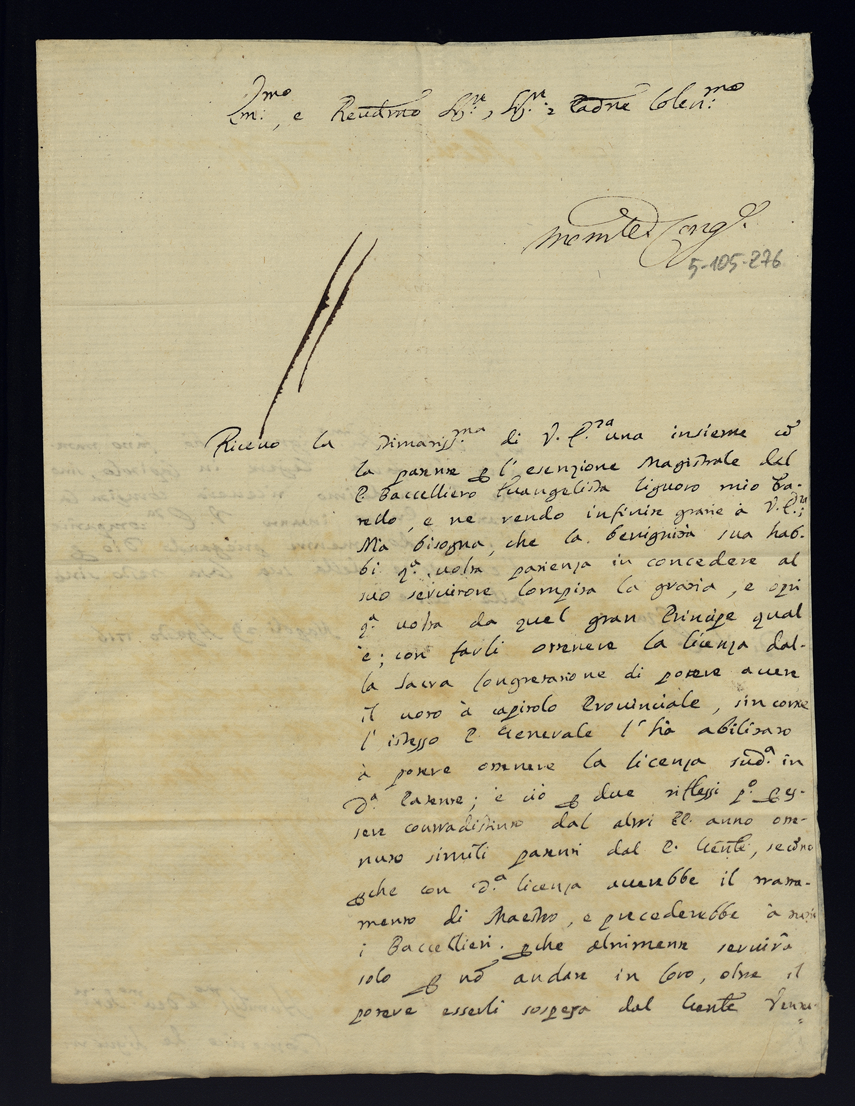 Ill.mo, e Reud.mo Sig.re, Sig.re, e Padrne Colen.mo
5-105-276
Riceuo la stimatiss.ma di V. E.za una insieme cō
la patente ꝑ l'esenzione Magistrale del
P. Baccelliero Euangelista liguoro mio fra-
tello, e ne rendo infinite gratie à V. E.za;
Mà bisogna, che la benignità sua hab-
bi q.a uolta patienza in concedere al
suo seruitore compita la gratia, e opri
q.a uolta da quel gran Principe qual
'e; con farli ottenere la licenza dal-
la Sacra Congregatione di potere auere
il uoto à capitolo Prouinciale, sin come
l'istesso P. Generale l'hà abilitato
à potere ottenere la licenza sud.a in
d.a Patente; e ciò ꝑ due riflessi p.o ꝑ es-
sere contradistinto dal altri PP. anno otte-
nuto simili patenti dal P. Gente, secōdo
ꝑche con d.a licenza auerebbe il tratta-
mento di Maestro, e precederebbe à tutti
i Baccellieri. ꝑche altrimente seruirà
solo ꝑ nō andare in Coro, oltre il
potere esserli sospesa dal Gente